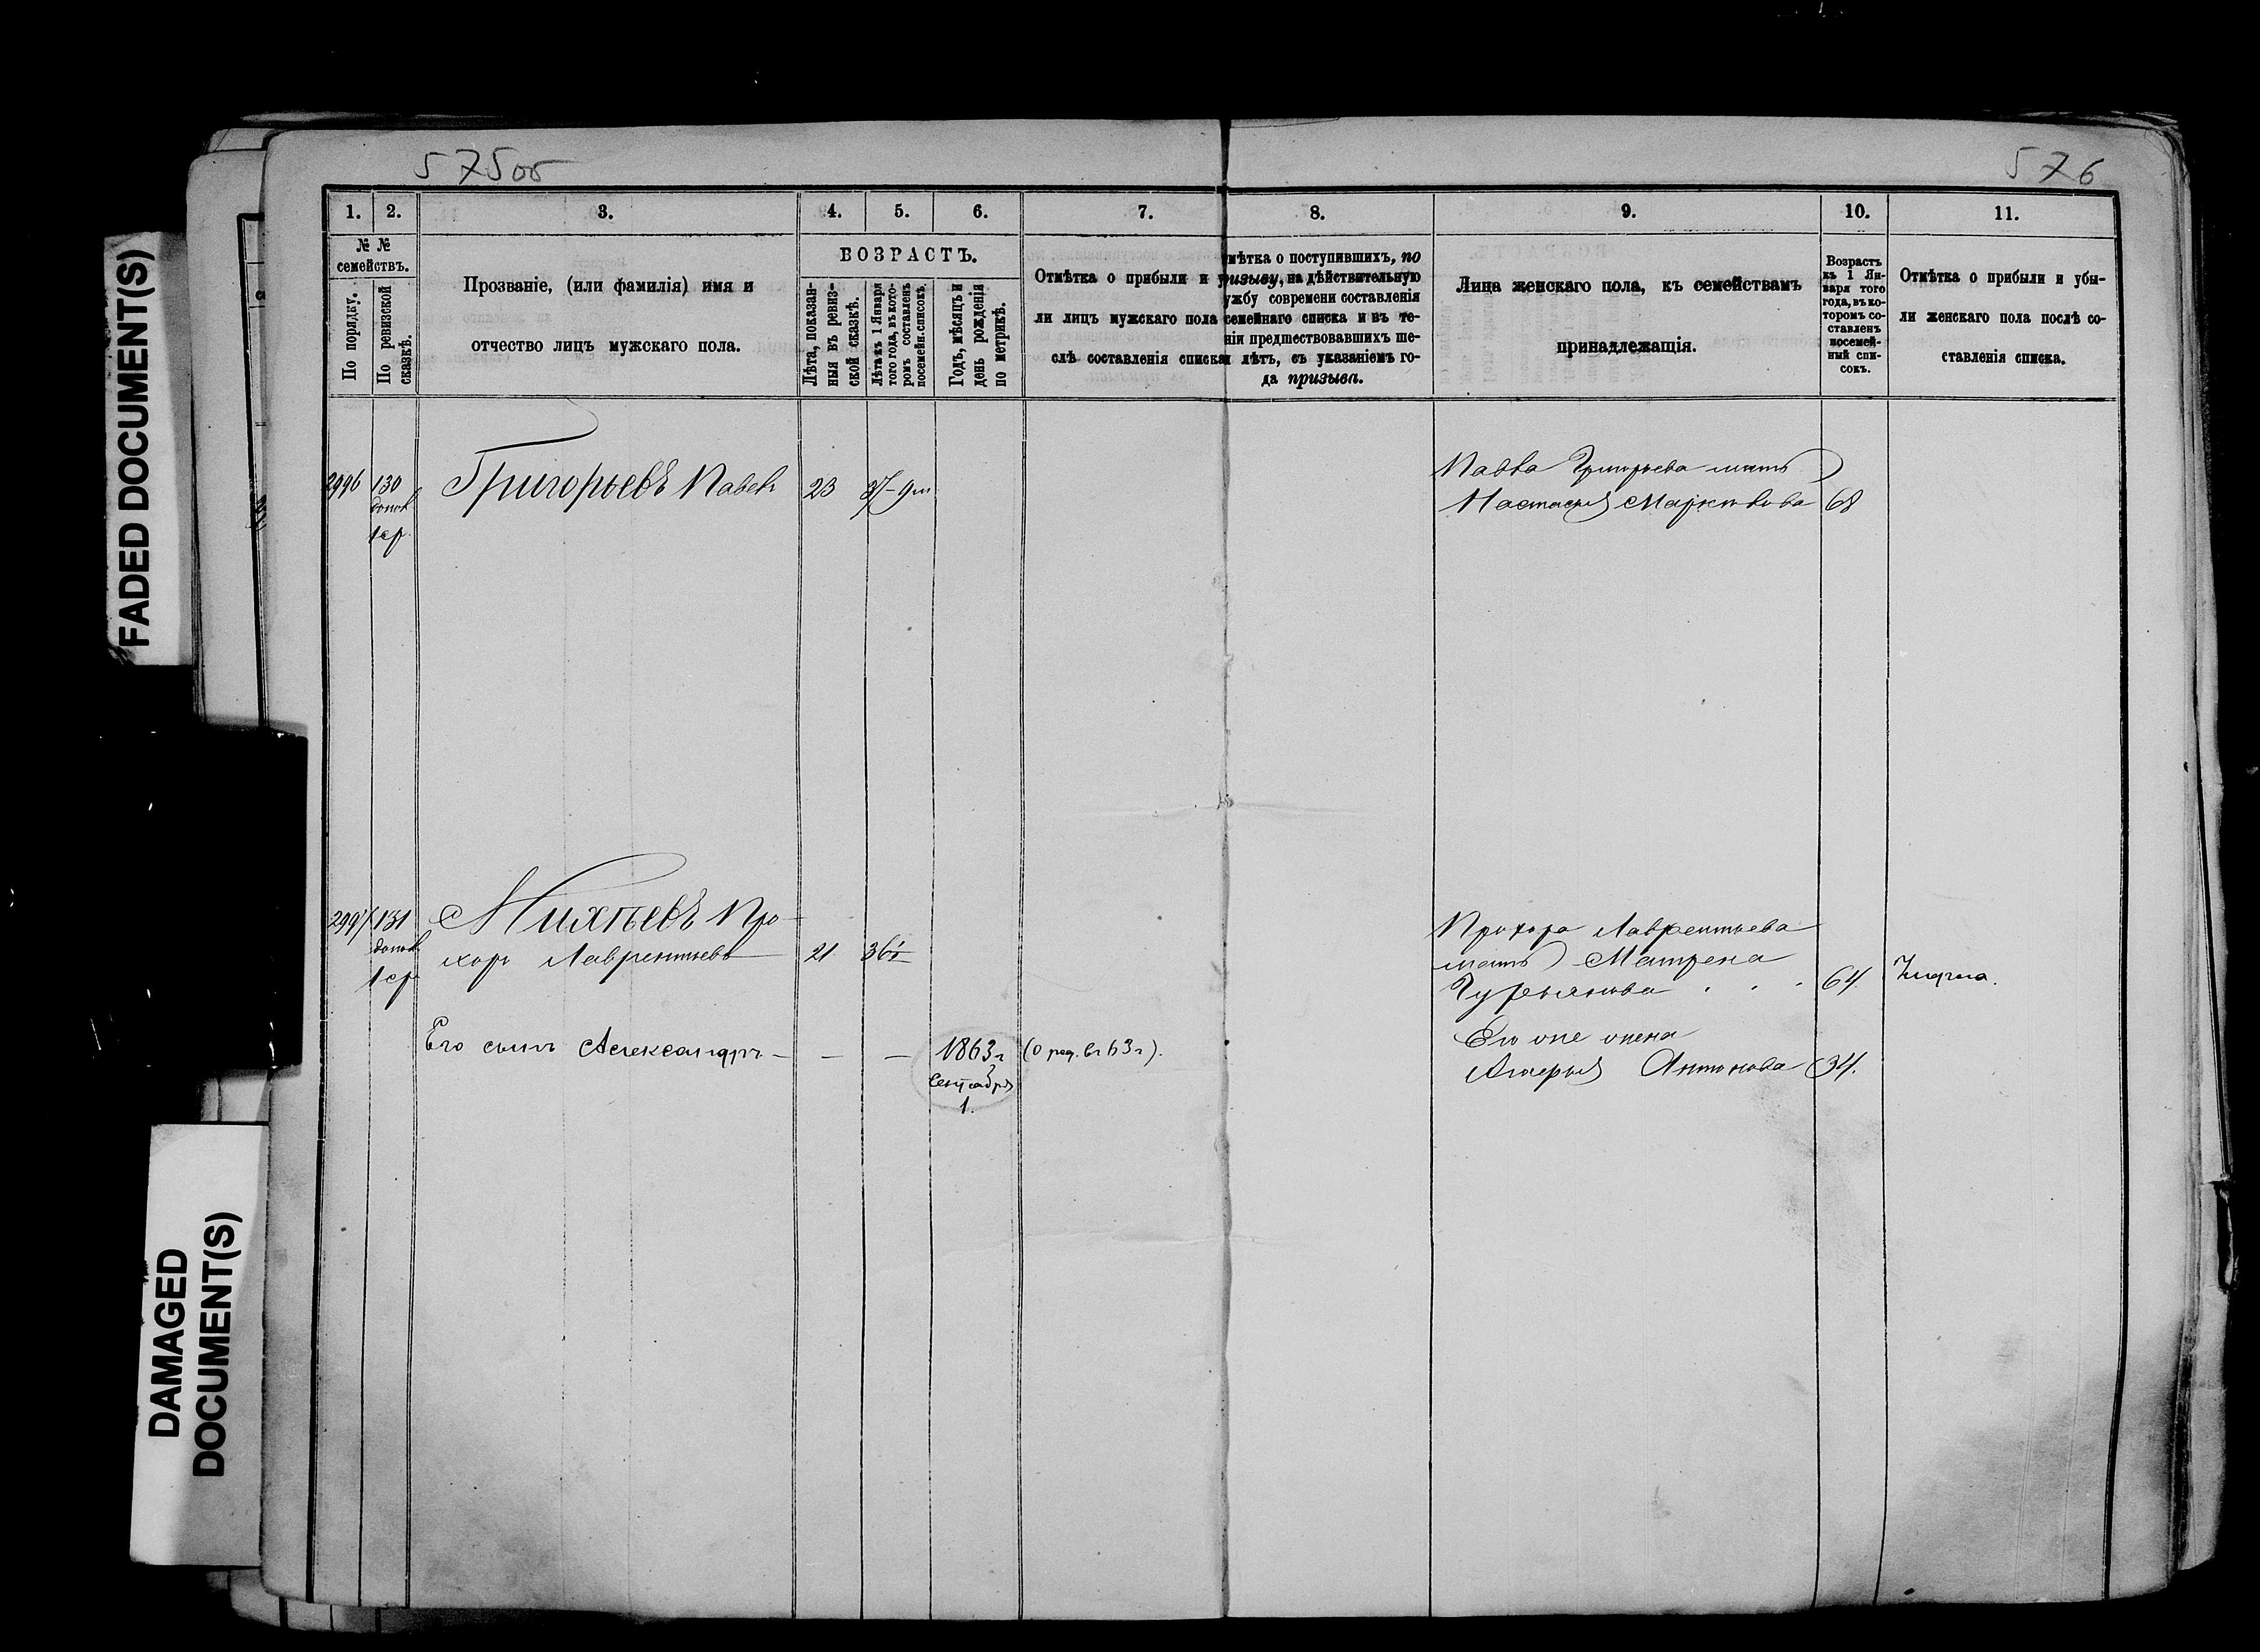 575об
576
1.
2.
3.
4.
5.
6.
7.
8.
9.
10.
11.
№ №
семействъ.
По порядку.
По ревизской
сказкѣ.
Прозваніе, (или фамилія) имя и
отчество лицъ мужскаго пола.
ВОЗРАСТЪ.
Лѣта, показан-
ныя въ ревиз-
ской сказкѣ.
Лѣта къ 1 Января
того года, въ кото-
ромъ составленъ
посемейн. списокъ.
Годъ, мѣсяцъ и
день рожденія
по метрикѣ.
Отмѣтка о прибыли и у
ли лицъ мужскаго пола
слѣ составленія списка
мѣтка о поступившихъ, по
ризыву, на дѣйствительную
ужбу современи составленія
семейнаго списка и въ те-
ніи предшествовавшихъ ше-
и лѣтъ, съ указаніемъ го-
да призыва.
Лица женскаго пола, къ семействамъ
принадлежащія.
Возрастъ
къ 1 Ян-
варя того
года, въ ко-
торомъ со-
ставленъ
посемей-
ный спи-
сокъ.
Отмѣтка о прибыли и убы-
ли женскаго пола послѣ со-
ставленія списка.
2996 130 Григорьевъ Павелъ 23
1 ср.
Павла Григорьева мать
Настасья Маркелова 68
2997 131 Михѣевъ Про-
хоръ Лаврентьевъ 21 36
1 ср
Его сынъ Александръ - — — 1863 г
Сентября
1.
Прохора Лаврентьева
мать Матрена
Гурьянова . . . 64.
Его же жена
Антонова 34.
FADED DOCUMENT(S)
DAMAGED
DOCUMENT(S)